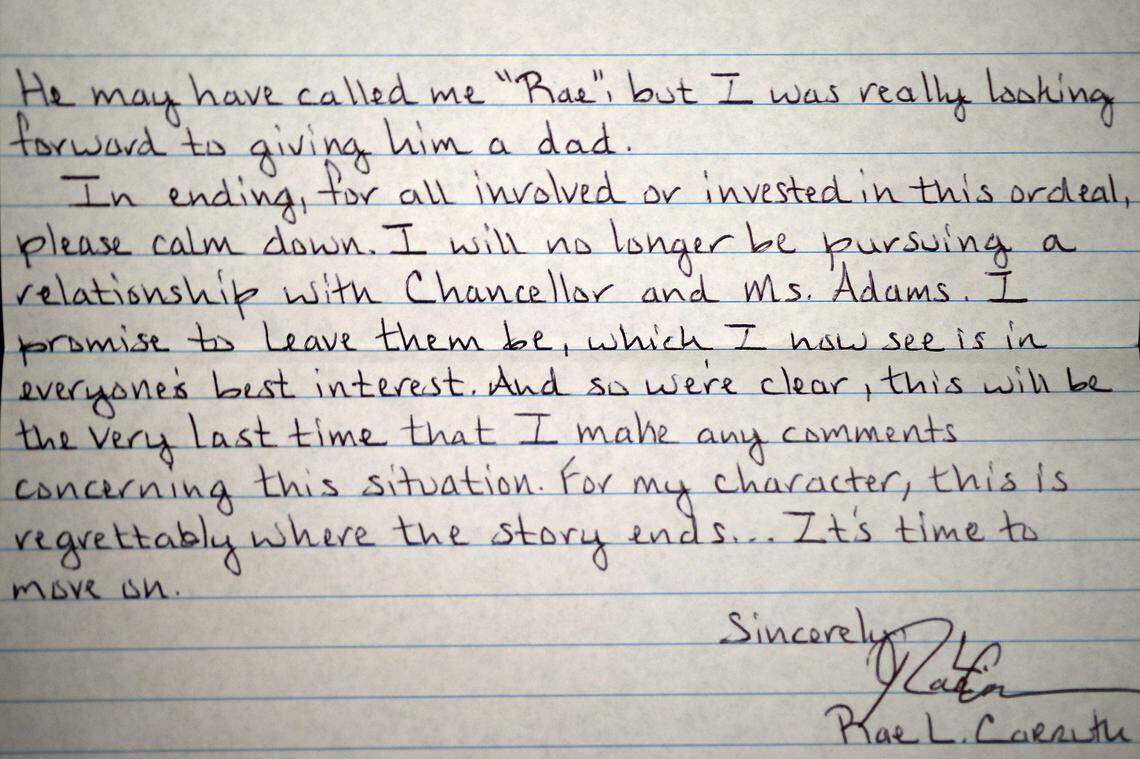 He may have called me "Rae", but I was really looking
forward to giving him a dad.
In ending, for all involved or invested in this ordeal,
please calm down. I will no longer be pursuing a
relationship with Chancellor and Ms. Adams. I
promise to leave them be, which I now see is in
everyone's best interest. And so we're clear, this will be
the very last time that I make any comments
concerning this situation. For my character, this is
regrettably where the story ends... It's time to
move on.
Sincerely
Rae L. Carruth